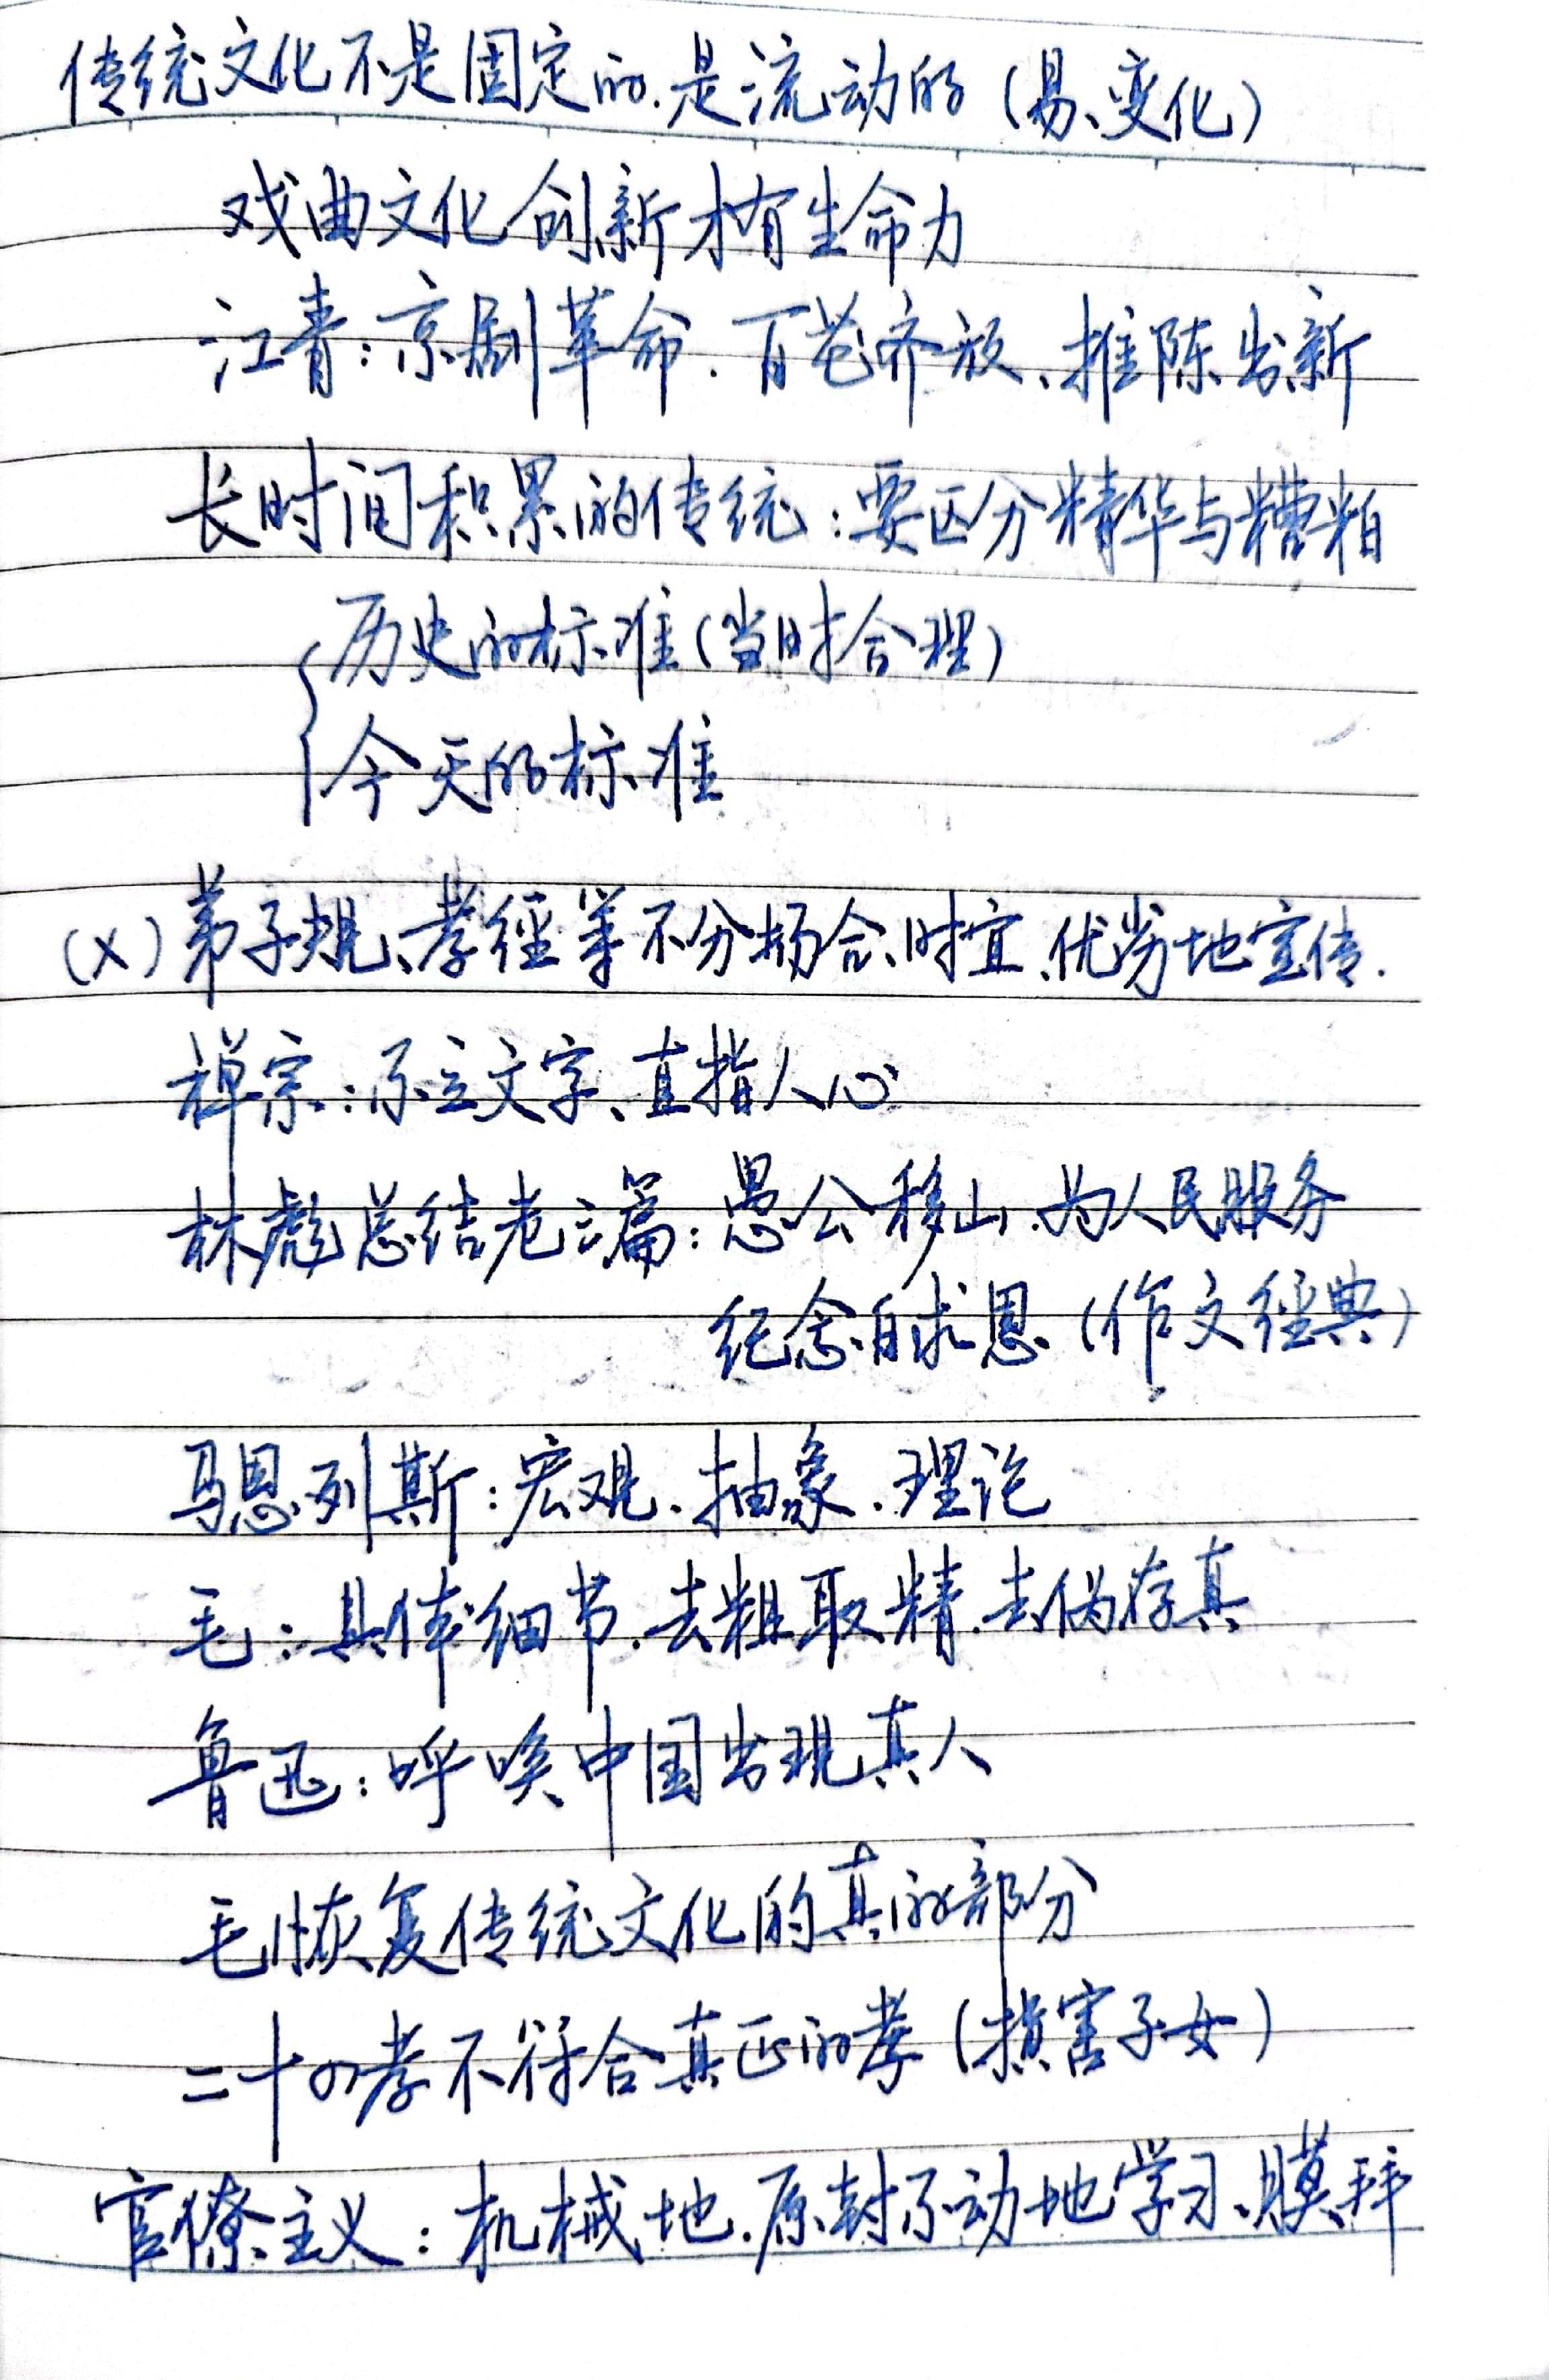 传统文化不是固定的.是流动的(易、变化)
戏曲文化创新才有生命力
江青:京剧革命.百花齐放、推陈出新
长时间积累的传统:要区分精华与糟粕
历史的标准(当时合理)
今天的标准
(×)弟子规、孝经等不分场合、时宜、优劣地宣传.
禅宗:不立文字、直指人心
林彪总结老三篇:愚公移山.为人民服务
纪念白求恩(作文经典)
马恩列斯:宏观、抽象、理论
毛:具体细节.去粗取精.去伪存真
鲁迅:呼唤中国出现真人
毛恢复传统文化的真的部分
二十四孝不符合真正的孝(损害子女)
官僚主义:机械地.原封不动地学习、膜拜